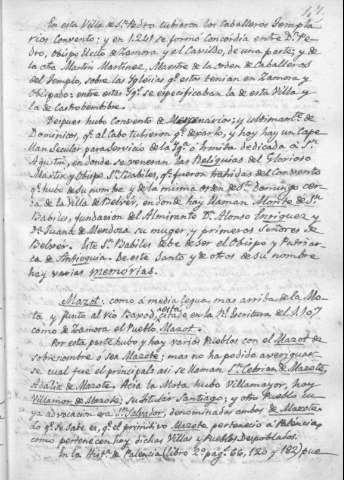 En esta Villa de Sn. Pedro tubieron los Caballeros Templa-
rios Convento; y en 1241 se formó Concordia entre Dn. Pe-
dro, Obispo Electo de Zamora, y el Cavildo, de una parte; y de
la otra Martin Martinez, Maestre de la orden de Caballeros
del Templo, sobre las Iglesias qe. estos tenian en Zamora y
Obispado: entre estas Igs. se especificaban la de esta Villa y
la de Castrobembibre.
Despues hubo Convento de Mercenarios; y ultimamte. de
Dominicos, qe. al cabo tubieron qe. dejarlo, y hoy hay un Cape-
llan Secular para Servicio de la Iga. ó hermita dedicada á Sn.
Agustin, en donde se veneran las Reliquias del Glorioso
Martir, y Obispo Sn. Babiles, qe. fueron trahidas del Convento
qe. hubo de su nombre y de la misma orden de Sto. Domingo cer-
ca de la Villa de Belver, en donde hoy llaman Monte de Sn.
Babiles, fundacion del Almirante Dn. Alonso Enriquez y
Da. Juana de Mendoza, su muger, y primeros Señores de
Belver. Este Sn. Babiles debe de ser el Obispo y Patriar-
ca de Antioquia. De este Santo y de otros de su nombre
hay varias memorias.
Mazot: como á media legua mas arriba de la Mo-
ta y junto al rio estaba, en la Rl. Escritura del 1107
como de Zamora el Pueblo Mazot.
Por esta parte hubo y hay varios Pueblos con el Mazot de
sobrenombre ó sea Mazote; mas no ha podido averiguar-
se cual fue el principal: asi se llaman Sn. Cebrian de Mazote,
Adalia de Mazote. Acia la Mota hubo Villamayor, hoy
Villamor de Mazote, su titular Santiago; y otro Pueblo cu-
ya advocacion era Sn. Salvador, denominados ambos de Mazote:
lo qe. se sabe es, qe. el primitivo Mazote pertenecio á Palencia,
como pertenecen hoy dichas Villas y Pueblos Despoblados.
En la Hista. de Palencia (libro 2o. pags. 66, 120 y 182) pue-